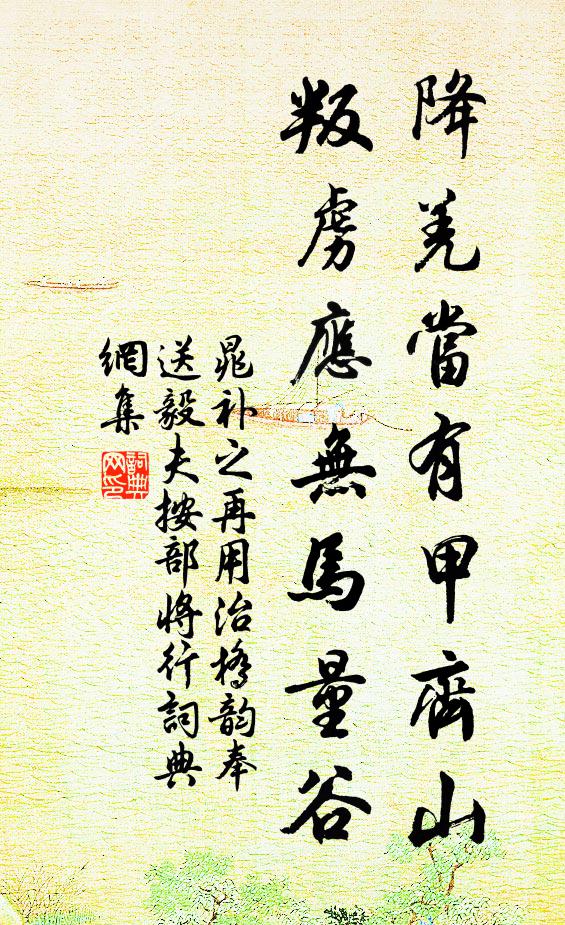 降羌當有甲齊山
叛虜應無馬量谷
晁补之再用治橋韵奉
送毅夫按部將行詞典
網集
詞典
网印